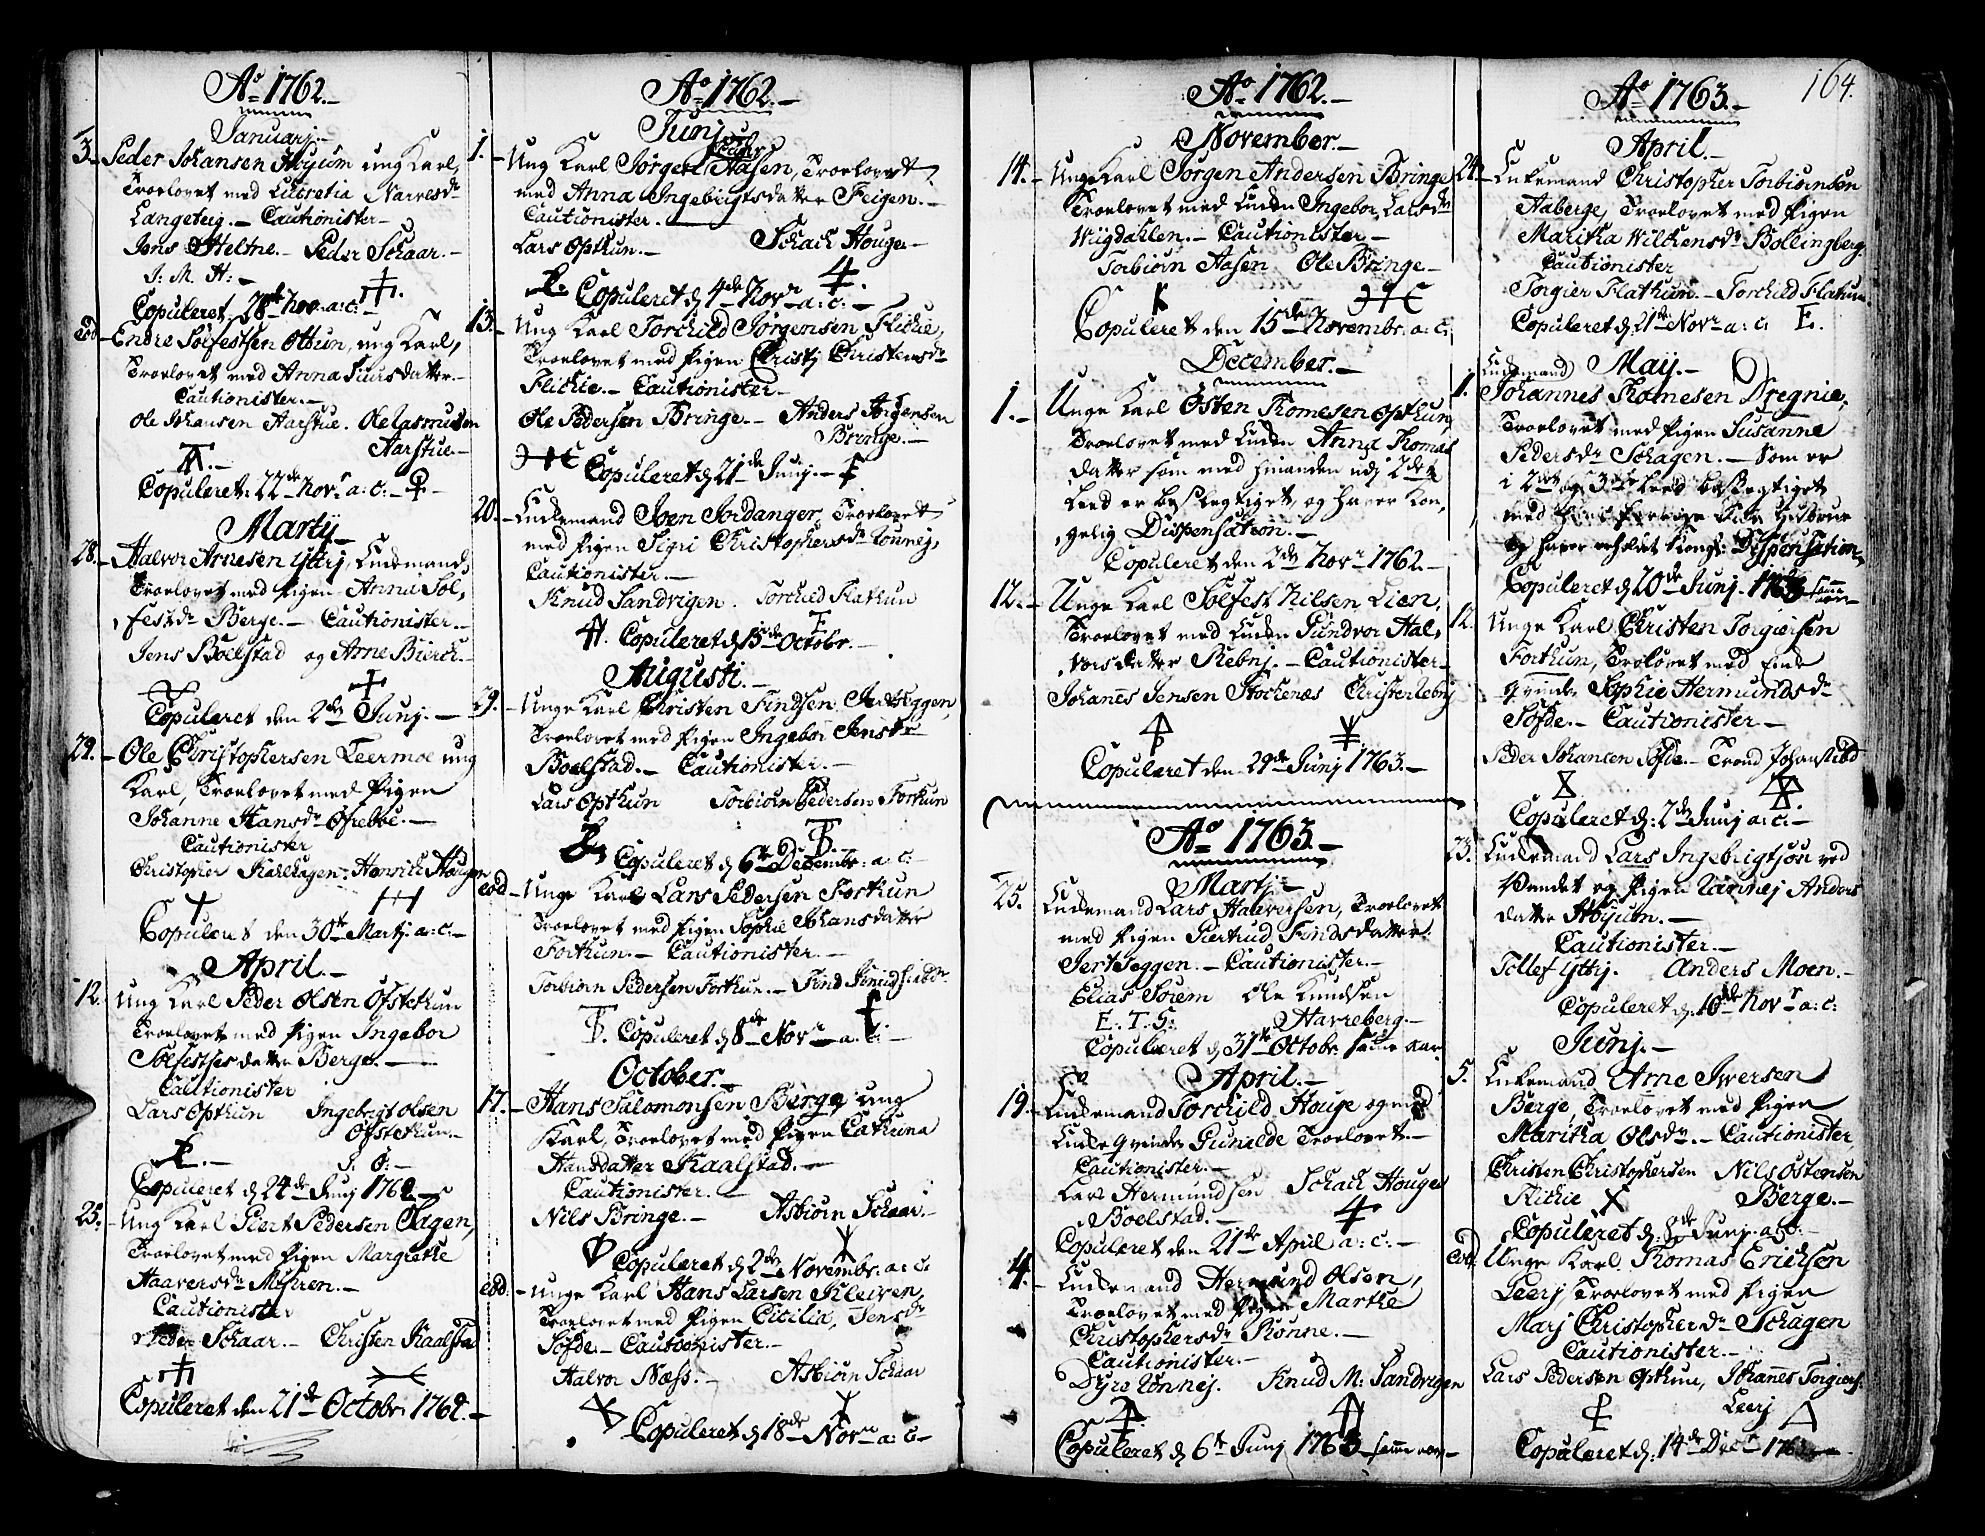 Ao 1762.
Januarj.
3. Peder Johansen Høyum ung Karl,
Troelovet med Lucretia Narvesdr
Langeteig. Cautionister
Jens Helme. Peder Schaar.
J. M. H:
Copuleret. 28de Nov. a:c:
eod. Endre Solfestsen Otthun, ung Karl,
Troelovet med Anna Siursdatter
Cautionister.
Ole Johansen Aarstue. Ole Rasmusen
Aarstue.
Copuleret: 22de Novr a:c:
Martij
28. Halvor Arnesen Ytrj, Enkemand,
Troelovet med Pigen Anna Sol,
festdr Berge. Cautionister.
Jens Boelstad og Arne Bierch.
Copuleret den 2de Junj.
29. Ole Christophersen Leermoe ung
Karl, Troelovet med Pigen
Johanne Hansdr Ofrebbe.
Cautionister
Christopher Kalhagen. Henrich Hougen
Copuleret den 30te Martj. a:c:
April.
12. Ung Karl Peder Olsen Ofstethun
Troelovet med Pigen Ingebor
Solfestsesdatter Berge.
Cautionister
Lars Opthun Ingebrigt Olsen
Ofstethun.
J. O:
Copuleret d 24de Junj 1762
25. Ung Karl Siert Pedersen Hagen,
Troelovet med Pigen Margrethe
Haaversdr Mohren.
Cautionister
Peder Schaar. Christen Kaalstad
Copuleret den 21de Octobr 1762.
Ao 1762.
Junj
1. Ung Karl Jørgen Peders Aasen, Troelovet
med Anna Ingebrigtsdatter Feigen.
Cautionister.
Lars Opthun. Schach Houge
Copuleret d 4de Novr a:c:
13. Ung Karl Torchild Jørgensen Flichie,
Troelovet med Pigen Christj Christensdr
Flichie. Cautionister
Ole Pedersen Bringe. Anders Jørgensen
Bringe.
Copuleret d 21de Junj.
20. Enkemand Iven Jordanger, Troelovet
med Pigen Sigri Christophersdr Rønnej,
Cautionister.
Knud Sandvigen. Torchild Flathun
Copuleret d 13de Octobr.
Augusti.
29. Unge Karl Christen Findsen Jertseggen,
Troelovet med Pigen Ingebor Jensdr
Boelstad. Cautionister.
Lars Opthun Torbiørn Pedersen Forthun
Copuleret d 6te Decembr. a:c:
eod Unge Karl Lars Pedersen Forthun
Troelovet med Pigen Sophie Johansdatter
Forthun. Cautionister.
Torbiørn Pedersen Forthun.
Copuleret d 8de Novr a.c:
October.
17. Hans Salomonsen Berge ung
Karl, Troelovet med Pigen Cathrina
Hansdatter Kaalstad.
Cautionister.
Nils Bringe. Asbiørn Schaar.
Copuleret d 2de Novembr. a:c:
eod. Unge Karl Hans Larsen Kleiven,
Troelovet med Pigen Cicilia, Jensdr
Sofde. Cautionister.
Halvor Næss. Asbiørn Schaar
Copuleret d 18de Novr a:c
Ao 1762.
November.
14. Unge Karl Jørgen Andersen Bringe
Troelovet med Enken Ingebor Larsdr
Wiigdahlen. Cautionister
Torbiørn Aasen Ole Bringe
Copuleret den 15de Novembr. a:c:
December.
1. Unge Karl Østen Thomesen Opthun,
Troelovet med Enken Anna Thomas
datter som med hinanden udj 2det
Leed er beslegtiget, og haver Kon,
gelig Dispensation.
Copuleret den 2de Novr 1762.
12. Unge Karl Solfest Nilsen Lien,
Troelovet med Enken Gundvor Hal,
vorsdatter Rebnj. Cautionister
Johanes Jensen Stochenæs Christen Rebnj
Copuleret den 29de Junj 1763.
Ao 1763.
Martj
25. Enkemand Lars Haaversen, Troelovet
med Pigen Giertrud Findsdatter
Jertseggen. Cautionister.
Elias Sørem Ole Knudsen
E. T. S: Havreberg.
Copuleret d 31te Octobr. samme aar
April.
19. Enkemand Torchild Houge og med
Enke Qvinde Gunilde Troelovet.
Cautionister.
Lars Hermundsen Schach Houge
Boelstad.
Copuleret den 21de April a:c:
4. Enkemand Hermund Olsen,
Troelovet med Pigen Marthe
Christophersdr Rønne.
Cautionister.
Dyre Rønnej. Knud M: Sandvigen
Copuleret d 6te Junj 1763 samme aar
164.
Ao 1763.
April.
24. Enkemand Christopher Torbiørnsen
Aaberge, Troelovet med Pigen
Maritha Wilchensdr Bollingberg.
Cautionister
Torgier Flathun. Torchild Flathun
Copuleret d 21de Novr a:c:
Maij.
Enkemand
1. Johannes Thomesen Dregnie,
Troelovet med Pigen Susanne
Pedersdr Schagen. Som er
i 2det og 3die Leed besl:gtiget
med hans forrige Hustrue
og haver erholdet Kongl: Dispensation
Copuleret d 20de Junj. 1763 samme aar
12. Unge Karl Christen Torgiersen
Forthun, Troelovet med Enke
Qvinde Sophie Hermundsdr
Sofde. Cautionister
Peder Johansen Sofde. Trond Johanstad
Copuleret d: 2de Junj a:c:
23. Enkemand Lars Ingebrigtsøn ved
Vandet og Pigen Rannej Anders
datter Høyum.
Cautionister.
Tollef Ytrj. Anders Moen.
Copuleret d. 10de Novr a:c:
Junj.
5. Enkemand Arne Iversen
Berge, Troelovet med Pigen
Maritha Olsdr. Cautionister
Christen Christophersen Nils Østensen
Flichie Berge.
Copuleret d: 8de Junj. a:c:
eod. Unge Karl. Thomas Erichsen
Leerj, Troelovet med Pigen
Marj Christopherdr Schagen
Cautionister.
Lars Pedersen Opthun, Johanes Torgiers.
Leerj
Copuleret d: 14de Decr 1763